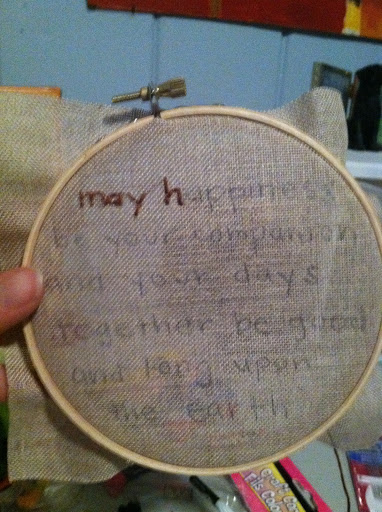 may happiness
be your companion
and your days
together be good
and long upon
the earth